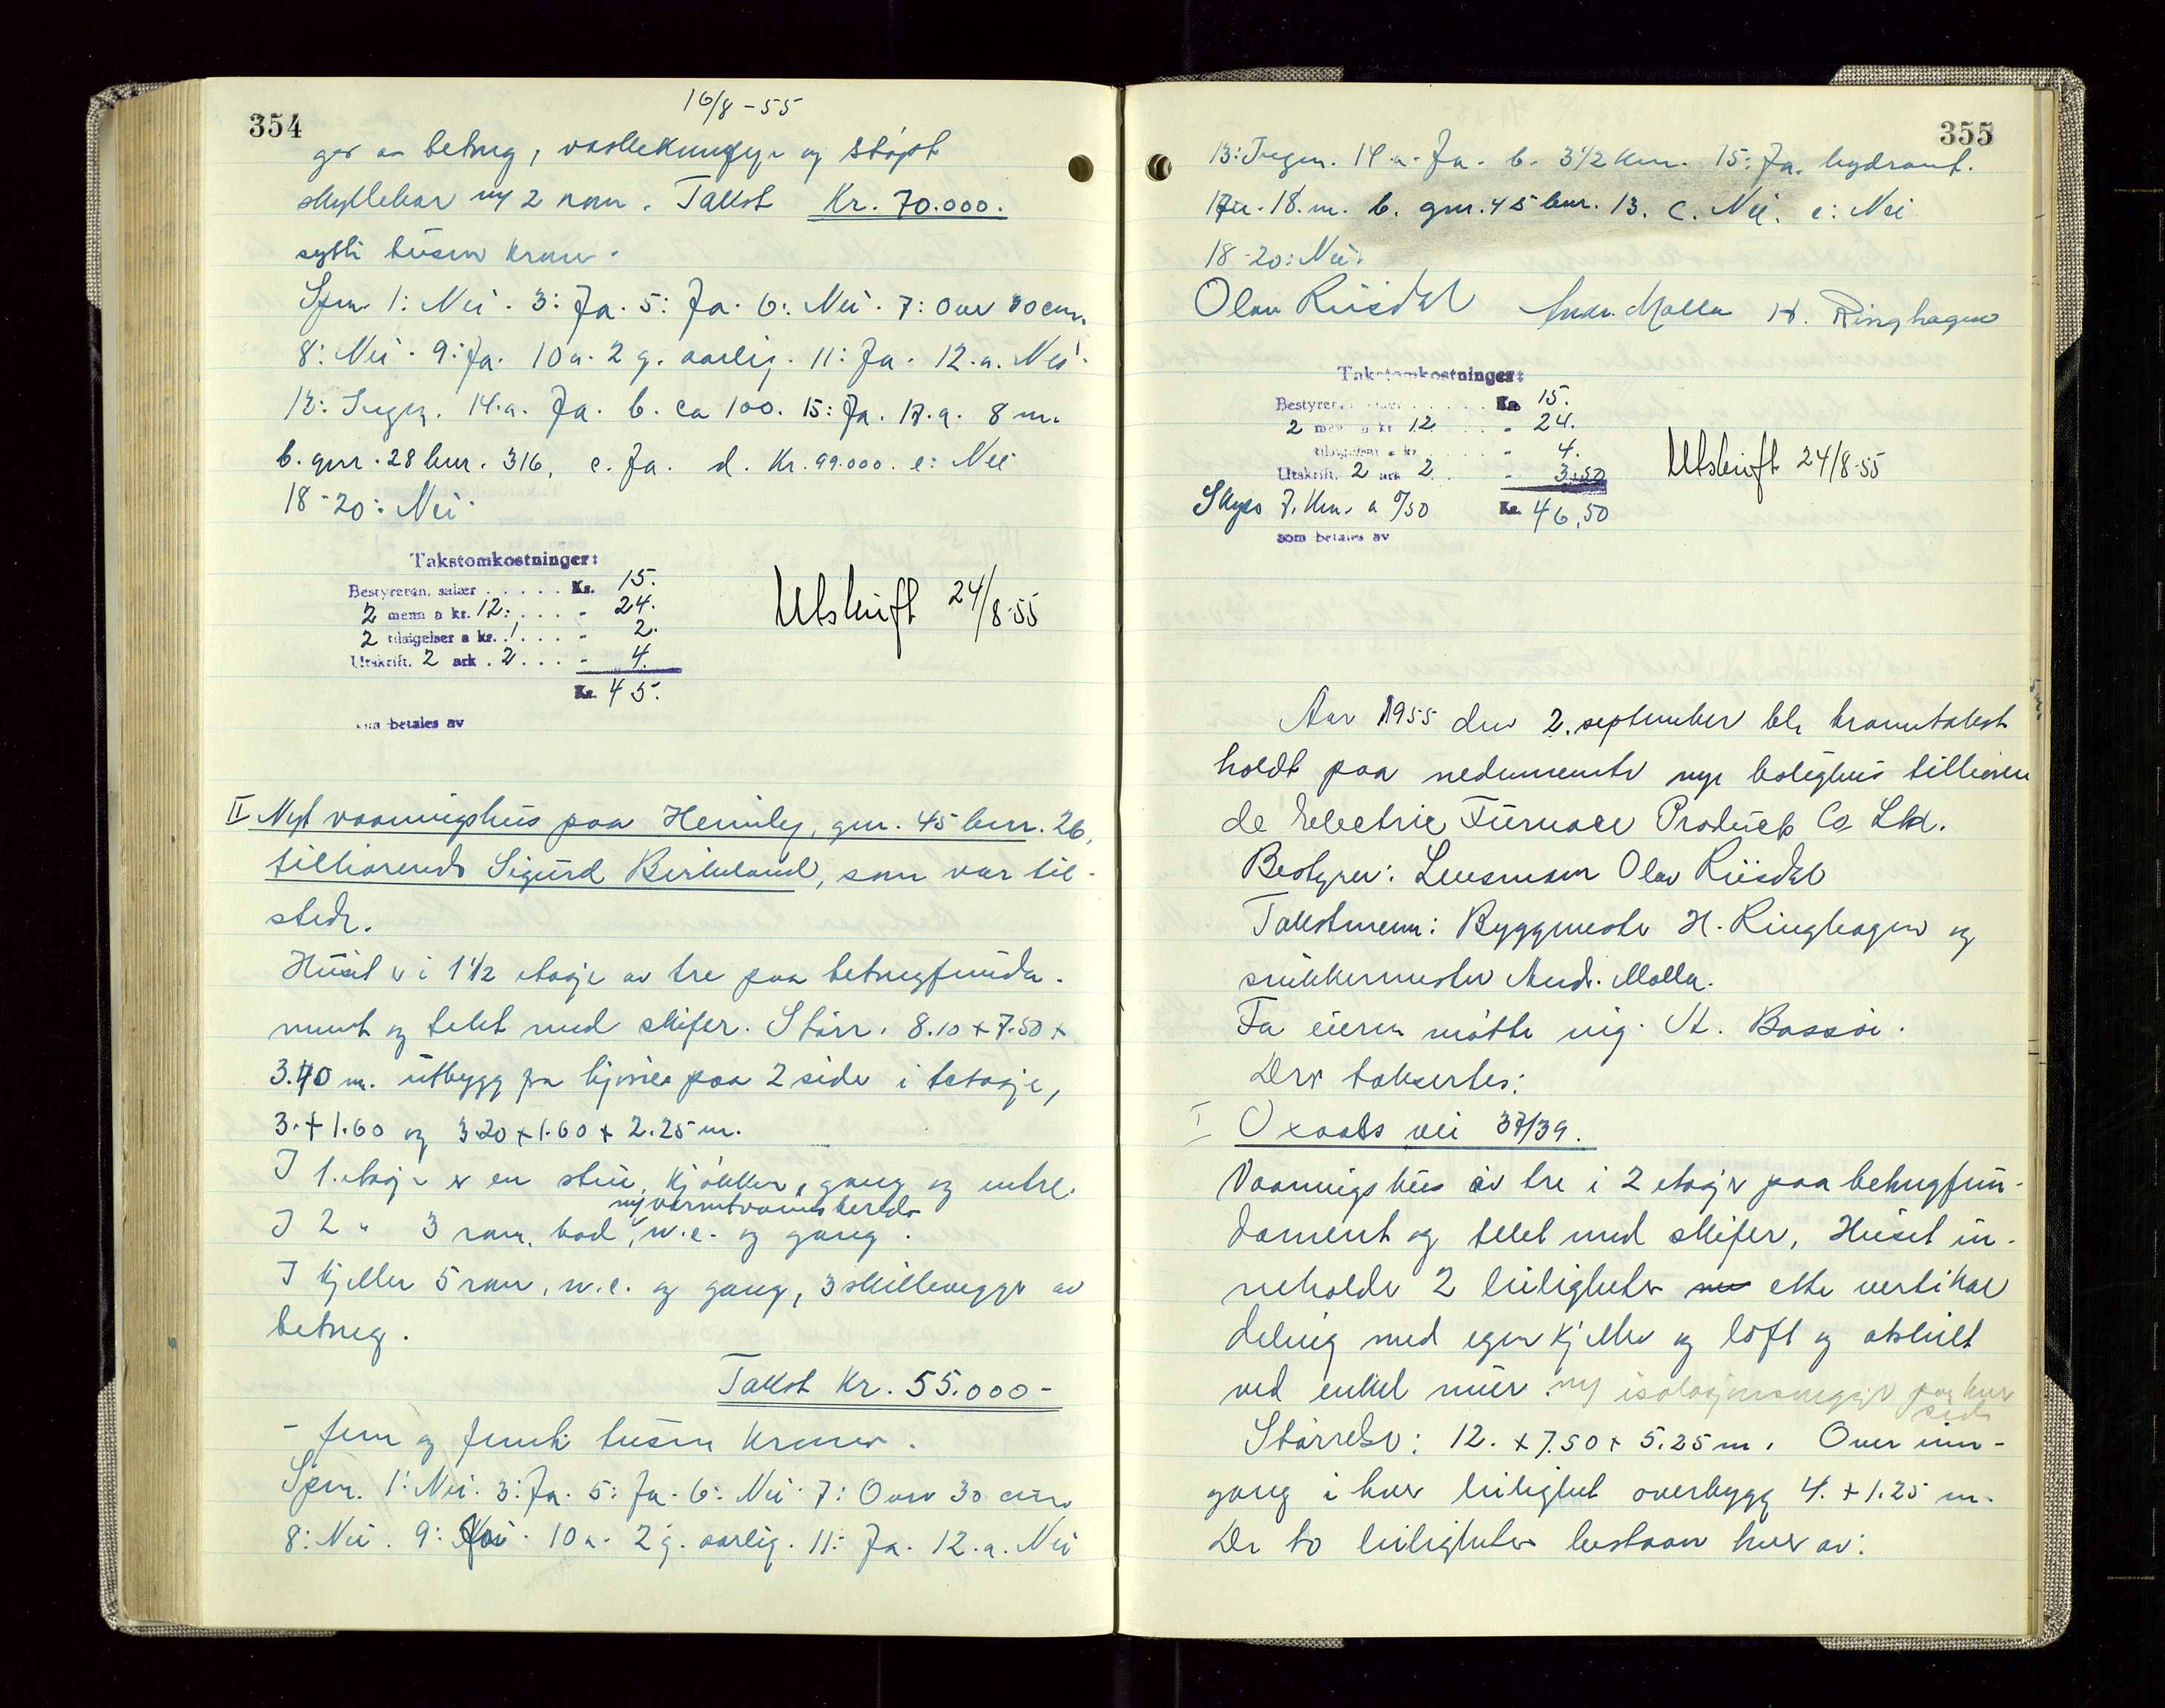 354
16/8-55
ger av betong, vaskekum og støpt
skyllekar og 2 rom. Takst Kr. 70.000.
sytti tusen kroner.
Spm. 1: Nei. 3: Ja. 5: Ja. 6: Nei. 7: Over 30 cm.
8: Nei. 9: Ja. 10 a. 2 g. aarlig. 11: Ja. 12.a. Nei.
13: Ingen. 14.a. Ja. b. ca 100. 15: Ja. 17.a. 8 m.
b. gnr. 28 bnr. 316. c. Ja. d. Kr. 99.000. e: Nei
18-20: Nei.
Takstomkostninger:
Bestyreren, salær . . . . . Kr. 15.
2 menn a kr. 12. . . . - 24.
2 tilsigelser a kr. 1 . . . - 2.
Utskrift. 2 ark . 2 . . . - 4.
Kr. 45.
betales av
Utskrift 24/8-55
II Nyt vaaningshus paa Heimly, gnr. 45 bnr. 26,
tilhørende Sigurd Birkeland, som var til-
stede.
Huset er i 1 1/2 etasje av tre paa betongfunda-
ment og tekt med skifer. Størr. 8.10 + 7.50 +
3.70 m. utbygg fra hjørne paa 2 sider i 1 etasje,
3. + 1.60 og 3.20 + 1.60 + 2.25 m.
I 1. etasje er en stue, kjøkken, gang og entre.
og varmtvannsbereder
I 2 " 3 rom, bad, w.c. og gang.
I kjeller 5 rom, w.c. og gang, 3 skillevegger av
betong.
Takst Kr. 55.000-
- fem og femti tusen kroner.
Spm. 1: Nei. 3: Ja. 5: Ja. 6: Nei. 7: Over 30 cm
8: Nei. 9: 10 a. 2 g. aarlig. 11: Ja. 12.a. Nei
355
13: Ingen. 14.a. Ja. b. 3 1/2 km. 15: Ja. hydrant.
17a. 18. m. b. gnr. 45 bnr. 13. c. Nei. e: Nei
18-20: Nei.
Olav Riisdal Andr. Molla H. Ringhagen
Takstomkostninger:
Bestyreren salær . . . . . Kr. 15.
2 menn a kr 12 . . . - 24.
tilsigelser a kr. . . . - 4.
Utskrift. 2 ark 2 . . - 3.50
Skyss 7. km. a 0/50 Kr. 46,50
som betales av
Utskrift 24/8-55
Aar 1955 den 2. september ble branntakst
holdt paa nedennevnte nye bolighus tilhøren
de Electric Furnace Products Co Ltd.
Bestyrer: Lensmann Olav Riisdal
Takstmenn: Byggmester H. Ringhagen og
snikkermester Andr. Molla.
For eieren møtte ing. St. Bassøe.
Der taksertes:
I Oxaals vei 37/39.
Vaaningshus av tre i 2 etasjer paa betongfun-
dament og tekt med skifer, Huset in-
neholder 2 leiligheter etter vertikal
deling med egen kjeller og loft og atskilt
ved enkel mur og isolasjonsvegger paa hver
side
Størrelse: 12. + 7.50 + 5.25 m. Over inn-
gang i hver leilighet overbygg 4. + 1.25 m.
De to leiligheter bestaar hver av: